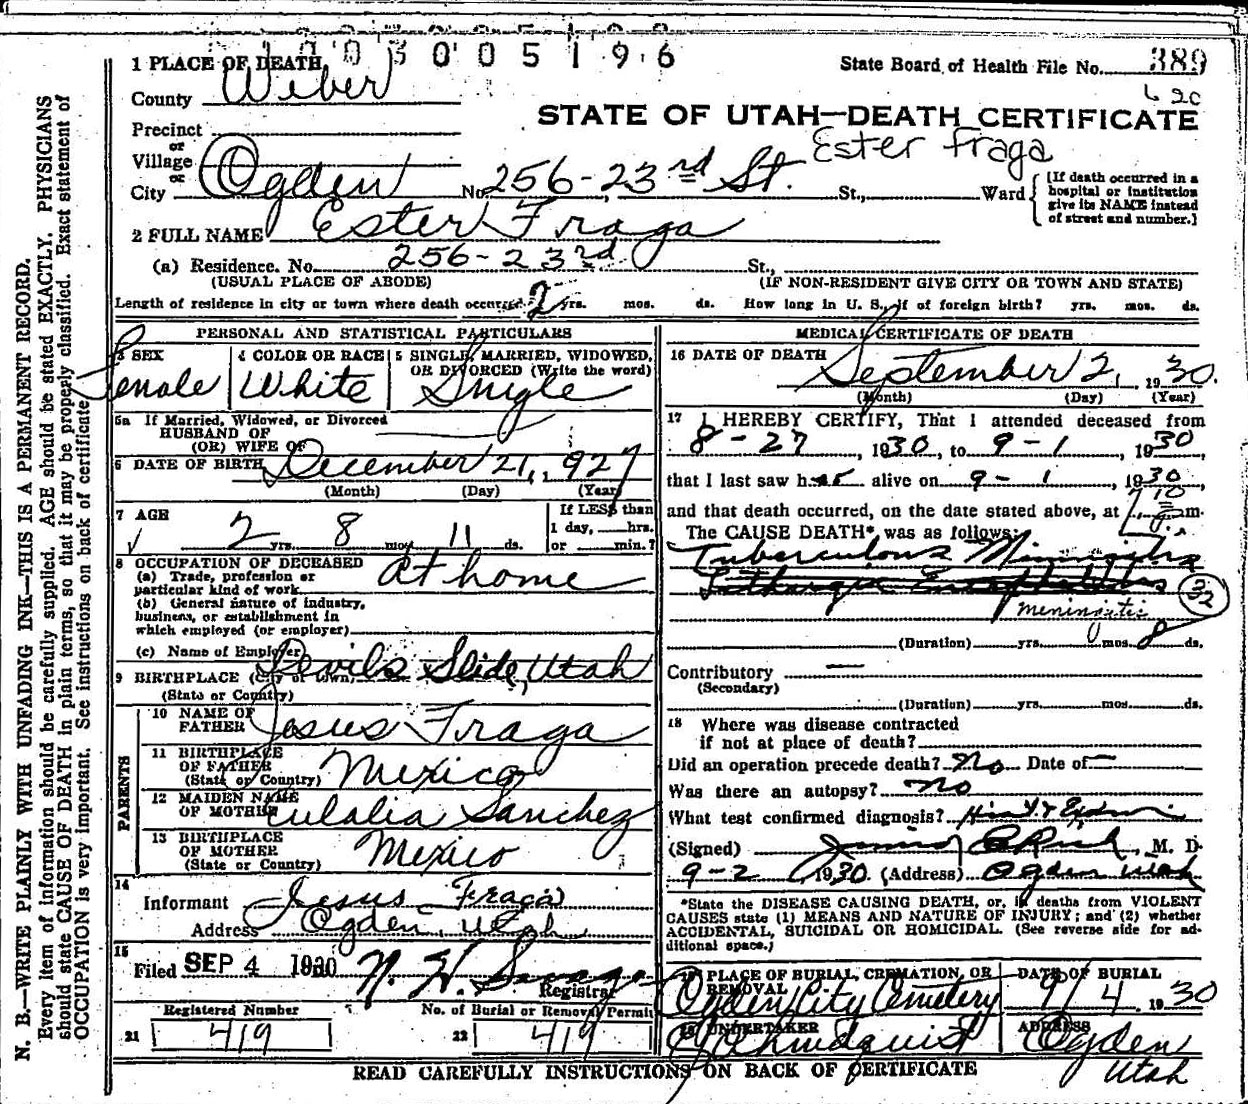 1 0 0 3 0 0 5 1 9 6
1 PLACE OF DEATH
State Board of Health File No. 389
County Weber
STATE OF UTAH—DEATH CERTIFICATE
Precinct
or
Village
or
Ester Fraga
City Ogden No. 256-23rd St. St., Ward
[If death occurred in a
hospital or institution
give its NAME instead
of street and number.]
2 FULL NAME Ester Fraga
(a) Residence. No. 256-23rd St.,
(USUAL PLACE OF ABODE) (IF NON-RESIDENT GIVE CITY OR TOWN AND STATE)
Length of residence in city or town where death occurred 2 yrs. mos. ds. How long in U. S., if of foreign birth? yrs. mos. ds.
PERSONAL AND STATISTICAL PARTICULARS
3 SEX Female
4 COLOR OR RACE White
5 SINGLE, MARRIED, WIDOWED,
OR DIVORCED (Write the word)
Single
5a If Married, Widowed, or Divorced
HUSBAND OF
(OR) WIFE OF
6 DATE OF BIRTH December 21, 1927
(Month) (Day) (Year)
7 AGE 2 yrs. 8 mos. 11 ds.
If LESS than
1 day, hrs.
or min.?
8 OCCUPATION OF DECEASED
(a) Trade, profession or
particular kind of work at home
(b) General nature of industry,
business, or establishment in
which employed (or employer)
(c) Name of Employer
9 BIRTHPLACE (City or town) Devils Slide, Utah
(State or Country)
PARENTS
10 NAME OF
FATHER Jesus Fraga
11 BIRTHPLACE
OF FATHER
(State or Country) Mexico
12 MAIDEN NAME
OF MOTHER Eulalia Sanchez
13 BIRTHPLACE
OF MOTHER
(State or Country) Mexico
14
Informant Jesus Fraga
Address Ogden, Utah
15
Filed SEP 4 1930 N. H. Savage
Registrar
Registered Number
21 419
No. of Burial or Removal Permit
22 419
MEDICAL CERTIFICATE OF DEATH
16 DATE OF DEATH
September 2, 1930.
(Month) (Day) (Year)
17 I HEREBY CERTIFY, That I attended deceased from
8-27, 1930, to 9-1, 1930
that I last saw her alive on 9-1, 1930,
and that death occurred, on the date stated above, at 7 10 m.
The CAUSE DEATH* was as follows:
Tuberculous Miningitis
Lethargic Encephalitis
32
meningitis
(Duration) yrs. mos. 8 ds.
Contributory
(Secondary)
(Duration) yrs. mos. ds.
18 Where was disease contracted
if not at place of death?
Did an operation precede death? No Date of
Was there an autopsy? No
What test confirmed diagnosis?
(Signed) Rich, M. D.
9-2, 1930 (Address) Ogden Utah
*State the DISEASE CAUSING DEATH, or, in deaths from VIOLENT
CAUSES state (1) MEANS AND NATURE OF INJURY; and (2) whether
ACCIDENTAL, SUICIDAL OR HOMICIDAL. (See reverse side for ad-
ditional space.)
19 PLACE OF BURIAL, CREMATION, OR
REMOVAL
Ogden City Cemetery
DATE OF BURIAL
9/4, 1930
20 UNDERTAKER
ADDRESS
Ogden
Utah
READ CAREFULLY INSTRUCTIONS ON BACK OF CERTIFICATE
N. B.—WRITE PLAINLY WITH UNFADING INK—THIS IS A PERMANENT RECORD.
Every item of information should be carefully supplied. AGE should be stated EXACTLY. PHYSICIANS
should state CAUSE OF DEATH in plain terms, so that it may be properly classified. Exact statement of
OCCUPATION is very important. See instructions on back of certificate